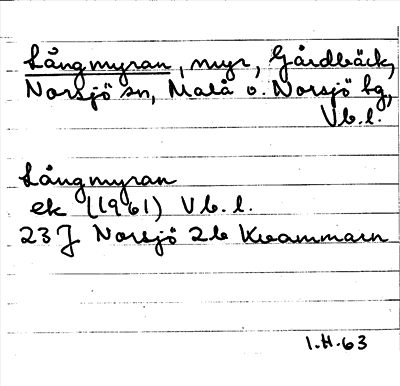 Långmyran, myr, Gårdbäck,
Norsjö sn, Malå o. Norsjö tg,
Vb. l.
Långmyran
ek (1961) Vb. l.
23 J Norsjö 2b Kvammarn
I.H.63